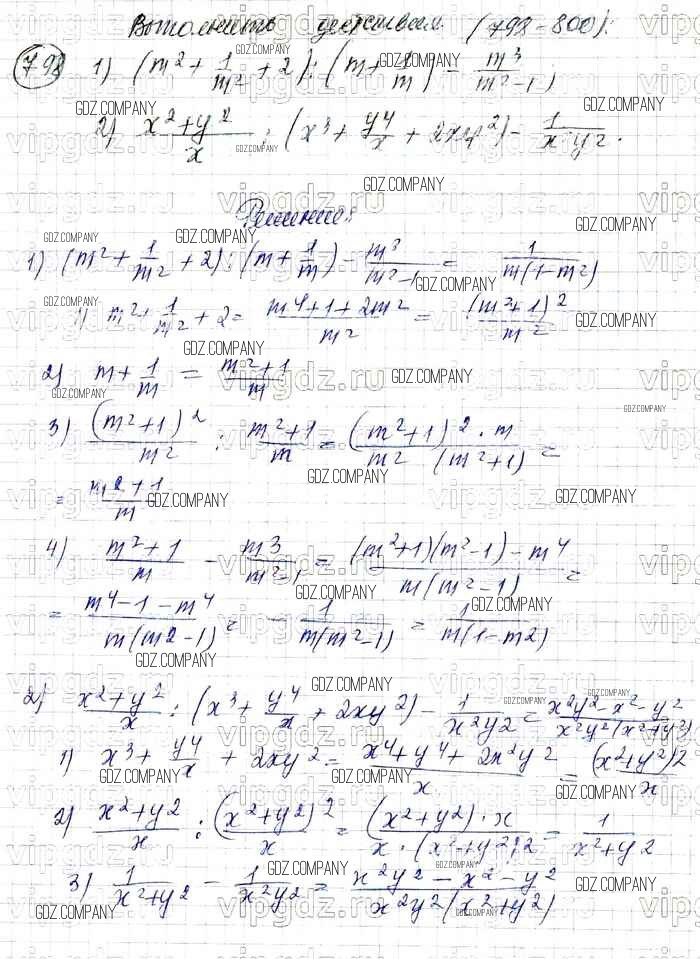 Выполнить действия (798-800):
798 1) (m² + 1/m² + 2) : (m + 1/m) - m³/(m²-1)
2) (x²+y²)/x : (x³ + y⁴/x + 2xy²) - 1/(x²y²).
Решение:
1) (m² + 1/m² + 2) : (m + 1/m) - m³/(m²-1) = 1/(m(1-m²))
1) m² + 1/m² + 2 = (m⁴+1+2m²)/m² = (m²+1)²/m²
2) m + 1/m = (m²+1)/m
3) (m²+1)²/m² : (m²+1)/m = ((m²+1)² · m)/(m² (m²+1)) =
= (m²+1)/m
4) (m²+1)/m - m³/(m²-1) = ((m²+1)(m²-1) - m⁴)/(m(m²-1)) =
= (m⁴-1-m⁴)/(m(m²-1)) = - 1/(m(m²-1)) = 1/(m(1-m²))
2) (x²+y²)/x : (x³ + y⁴/x + 2xy²) - 1/(x²y²) = (x²y²-x²-y²)/(x²y²(x²+y²))
1) x³ + y⁴/x + 2xy² = (x⁴+y⁴+2x²y²)/x = (x²+y²)²/x
2) (x²+y²)/x : (x²+y²)²/x = ((x²+y²)·x)/(x·(x²+y²)²) = 1/(x²+y²)
3) 1/(x²+y²) - 1/(x²y²) = (x²y²-x²-y²)/(x²y²(x²+y²))
GDZ.COMPANY
vipgdz.ru